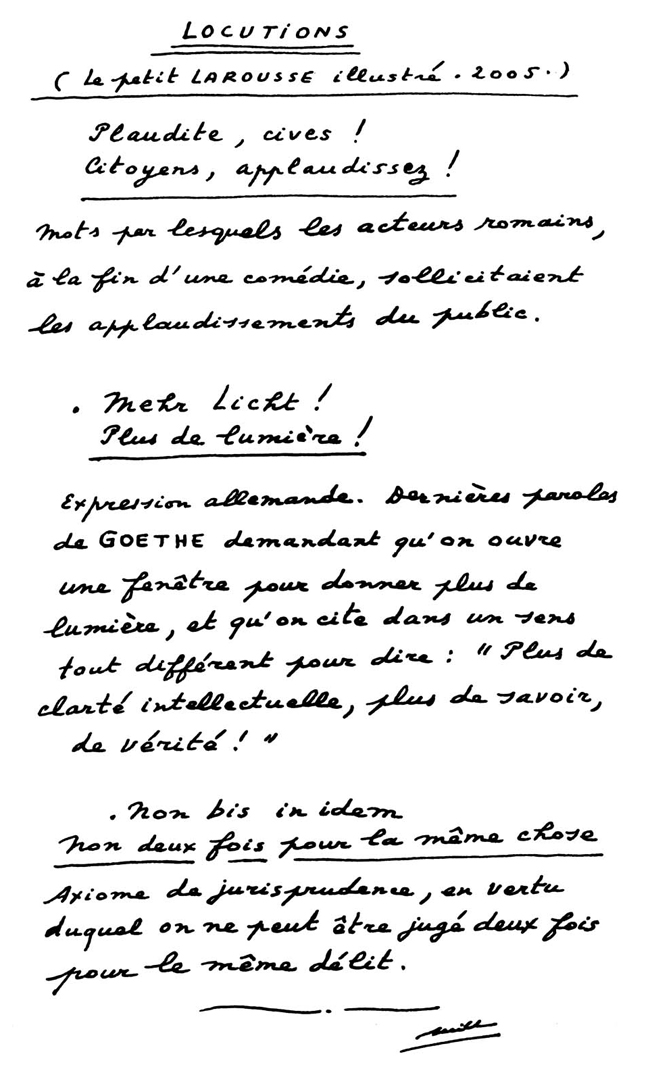 LOCUTIONS
( Le petit LAROUSSE illustré . 2005. )
Plaudite , cives !
Citoyens, applaudissez !
Mots par lesquels les acteurs romains,
à la fin d'une comédie, sollicitaient
les applaudissements du public.
. Mehr Licht !
Plus de lumière !
Expression allemande. Dernières paroles
de GOETHE demandant qu'on ouvre
une fenêtre pour donner plus de
lumière, et qu'on cite dans un sens
tout différent pour dire : " Plus de
clarté intellectuelle, plus de savoir,
de vérité ! "
. Non bis in idem
Non deux fois pour la même chose
Axiome de jurisprudence, en vertu
duquel on ne peut être jugé deux fois
pour le même délit.